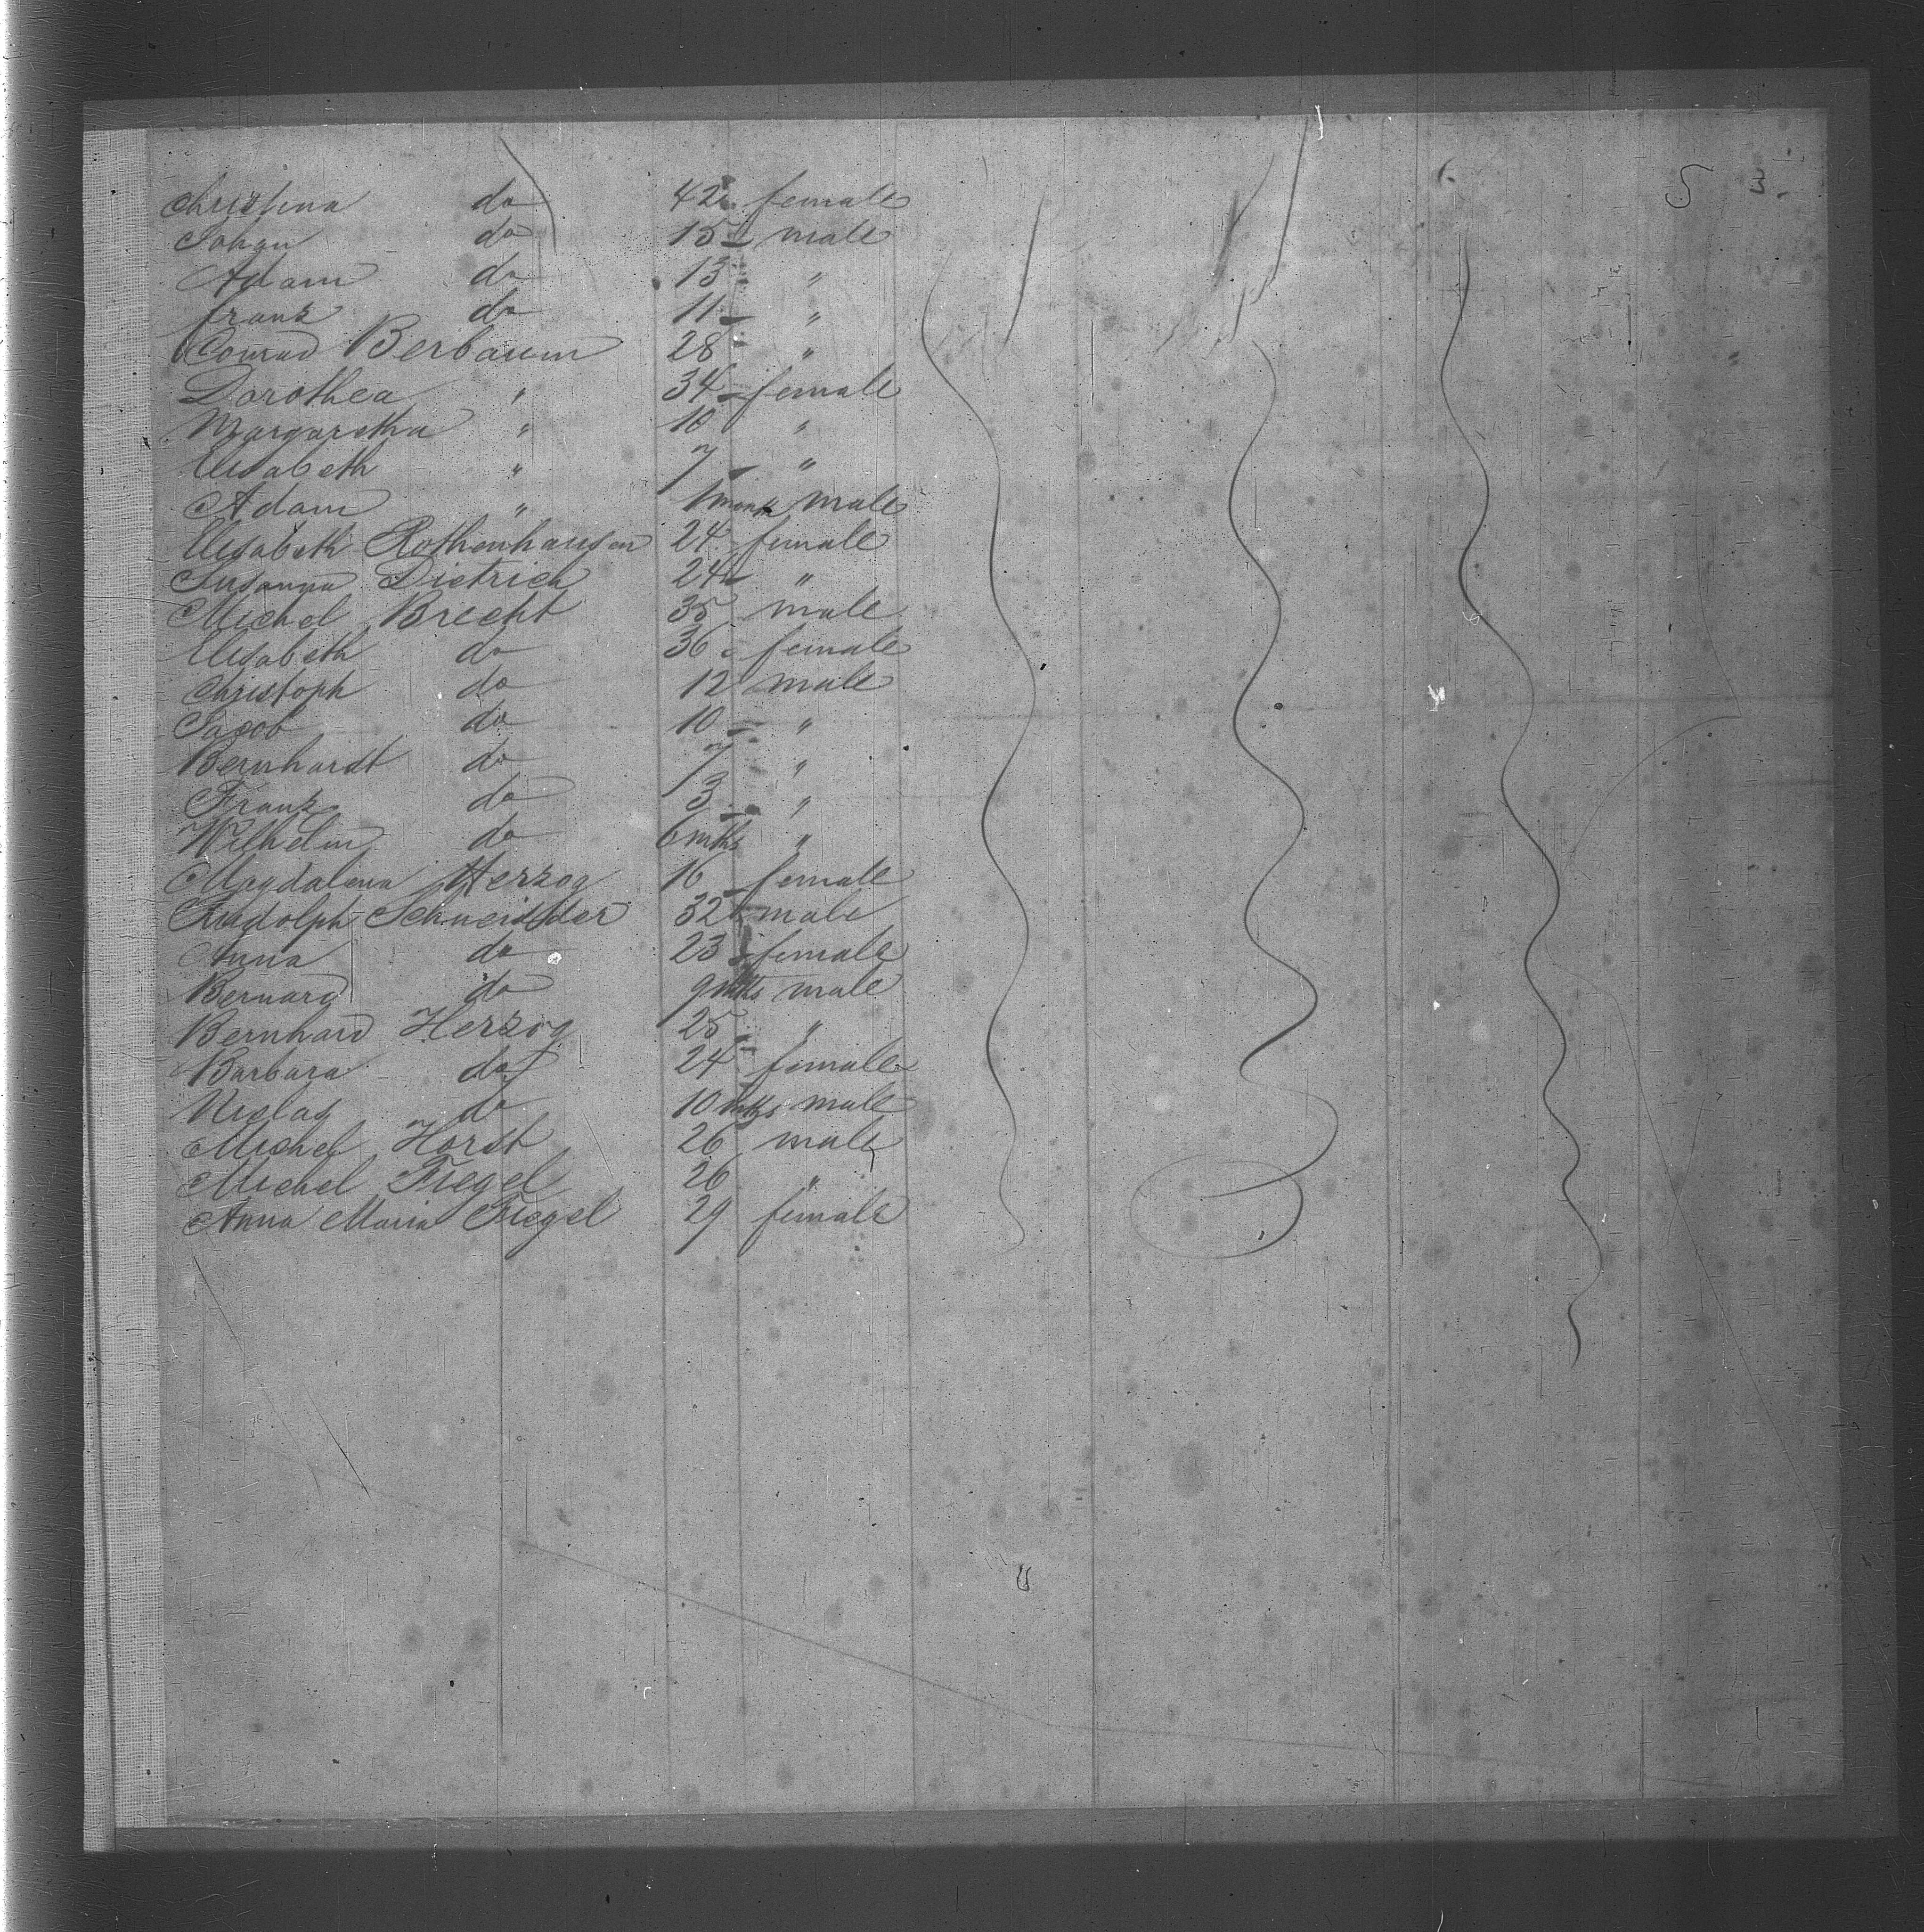 Christina do 42 female
Johan do 15 male
Adam do 13 "
franz do 11 "
Conrad Berbaum 28 "
Dorothea " 34 female
Margaretha " 10 "
Elisabeth " 7 "
Adam " 1 month male
Elisabeth Rothenhausen 24 female
Susanna Dietrich 24 "
Michel Brecht 35 male
Elisabeth do 36 female
Christoph do 12 male
Jacob do 10 "
Bernhardt do 7 "
Franz do 3 "
Wilhelm do 6 mths "
Magdalena Herzog 16 female
Rudolph Schneidder 32 male
Anna do 23 female
Bernard do 9 mths male
Bernhard Herzog 25 "
Barbara do 24 female
Niclas do 10 mths male
Michel Horst 26 male
Michel Fiegel 26 "
Anna Maria Fiegel 29 female